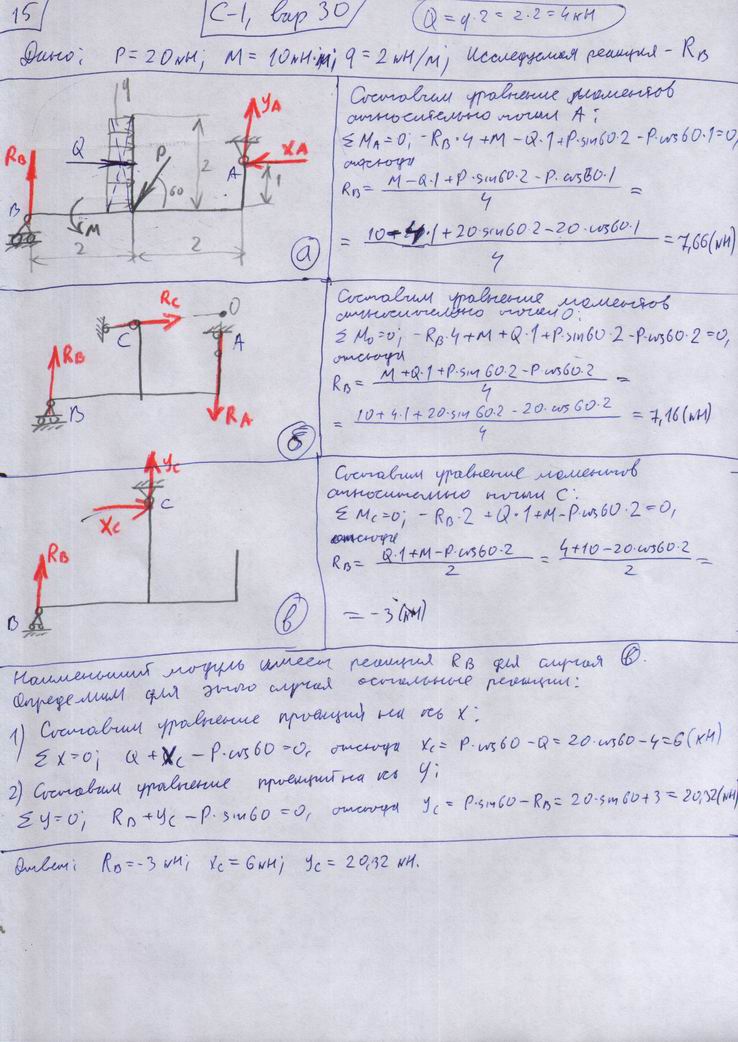 15
С-1, вар 30
Q = q·2 = 2·2 = 4 кН
Дано: P = 20 кН; M = 10 кН·м; q = 2 кН/м; Исследуемая реакция - R_B
q
Y_A
R_B
Q
P
2
X_A
A
1
60
B
M
2
2
а
Составим уравнение моментов
относительно точки A:
ΣM_A=0; -R_B·4+M-Q·1+P·sin60·2-P·cos60·1=0,
отсюда
R_B = (M-Q·1+P·sin60·2-P·cos60·1)/4 =
= (10-4·1+20·sin60·2-20·cos60·1)/4 = 7,66(кН)
R_C
O
C
A
R_B
B
R_A
б
Составим уравнение моментов
относительно точки O:
ΣM_O=0; -R_B·4+M+Q·1+P·sin60·2-P·cos60·2=0,
отсюда
R_B = (M+Q·1+P·sin60·2-P·cos60·2)/4 =
= (10+4·1+20·sin60·2-20·cos60·2)/4 = 7,16(кН)
Y_C
C
X_C
R_B
B
в
Составим уравнение моментов
относительно точки C:
ΣM_C=0; -R_B·2+Q·1+M-P·cos60·2=0,
отсюда
R_B = (Q·1+M-P·cos60·2)/2 = (4+10-20·cos60·2)/2 =
= -3(кН)
Наименьший модуль имеет реакция R_B для случая в.
Определим для этого случая остальные реакции:
1) Составим уравнение проекций на ось X:
ΣX=0; Q+X_C-P·cos60=0, отсюда X_C=P·cos60-Q=20·cos60-4=6(кН)
2) Составим уравнение проекций на ось Y:
ΣY=0; R_B+Y_C-P·sin60=0, отсюда Y_C=P·sin60-R_B=20·sin60+3=20,32(кН)
Ответ: R_B=-3 кН; X_C=6 кН; Y_C=20,32 кН.